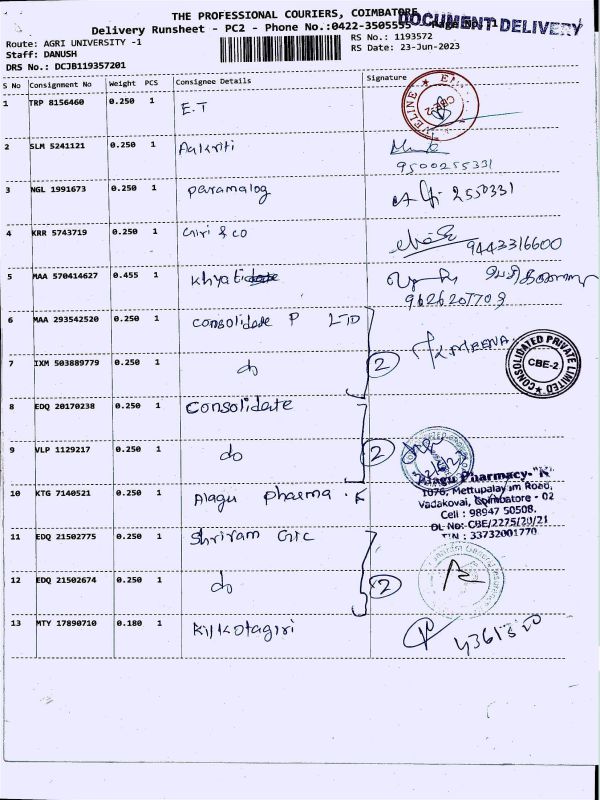 THE PROFESSIONAL COURIERS, COIMBATORE
DOCUMENT-DELIVERY
Delivery Runsheet - PC2 - Phone No.:0422-3505555
Route: AGRI UNIVERSITY -1
RS No.: 1193572
Staff: DANUSH
RS Date: 23-Jun-2023
DRS No.: DCJB119357201
S No Consignment No Weight PCS Consignee Details Signature
1 TRP 8156460 0.250 1 E.T
CBE-2
2 SLM 5241121 0.250 1 Aakriti
9500255331
3 NGL 1991673 0.250 1 paramalog 2550331
4 KRR 5743719 0.250 1 Giri & co 9443316600
5 MAA 570414627 0.455 1 Khyati
9626207709
6 MAA 293542520 0.250 1 Consolidate P LTD
K. MEENA
CONSOLIDATED PRIVATE LIMITED
CBE-2
7 IXM 503889779 0.250 1 do 2
8 EDQ 20170238 0.250 1 Consolidate
9 VLP 1129217 0.250 1 do 2
Alagu Pharmacy-"K"
10 KTG 7140521 0.250 1 Alagu pharma . K
1076, Mettupalayam Road,
Vadakovai, Coimbatore - 02
Cell : 98947 50508.
DL No: CBE/2275/20/21
TIN : 33732001770
11 EDQ 21502775 0.250 1 Shriram GIC
12 EDQ 21502674 0.250 1 do 2
13 MTY 17890710 0.180 1 Kilkotagiri